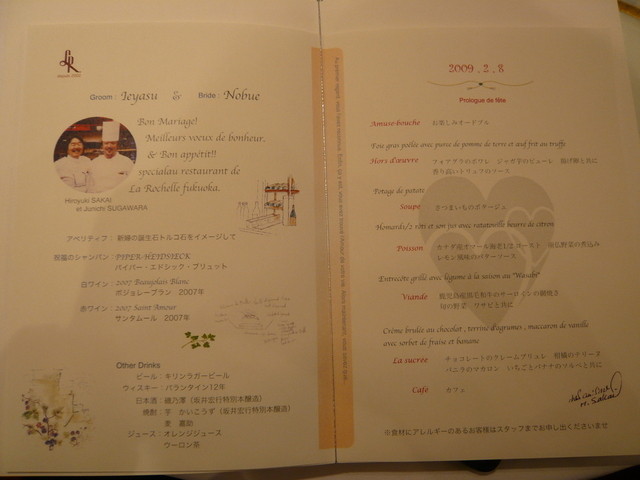 LR
Groom : Ieyasu & Bride : Nobue
Bon Mariage!
Meilleurs voeux de bonheur.
& Bon appétit!!
specialau restaurant de
La Rochelle fukuoka.
Hiroyuki SAKAI
et Junichi SUGAWARA
アペリティフ : 新婦の誕生石トルコ石をイメージして
祝福のシャンパン : PIPER-HEIDSIECK
パイパー・エドシック・ブリュット
白ワイン : 2007 Beaujolais Blanc
ボジョレーブラン 2007年
赤ワイン : 2007 Saint Amour
サンタムール 2007年
Other Drinks
ビール : キリンラガービール
ウィスキー : バランタイン12年
日本酒 : 綾乃澤（坂井宏行特別本醸造）
焼酎 : 芋 かいこうず（坂井宏行特別本醸造）
麦 嘉助
ジュース : オレンジジュース
ウーロン茶
2009 . 2 . 8
Prologue de fête
Amuse-bouche お楽しみオードブル
Foie gras poêlée avec purée de pomme de terre et œuf frit au truffe
Hors d'œuvre フォアグラのポワレ ジャガ芋のピューレ 揚げ卵と共に
香り高いトリュフのソース
Potage de patate
Soupe さつまいものポタージュ
Homards rôts et son jus avec ratatouille beurre de citron
Poisson カナダ産オマール海老のロースト 南仏野菜の煮込み
レモン風味のバターソース
Entrecôte grillé avec légume à la saison au "Wasabi"
Viande 鹿児島産黒毛和牛のサーロインの網焼き
旬の野菜 ワサビと共に
Crème brulée au chocolat , terrine d'agrumes , maccaron de vanille
avec sorbet de fraise et banane
La sucrée チョコレートのクレームブリュレ 柑橘のテリーヌ
バニラのマカロン いちごとバナナのソルベと共に
Café カフェ
H. Sakai
※食材にアレルギーのあるお客様はスタッフまでお申し出くださいませ